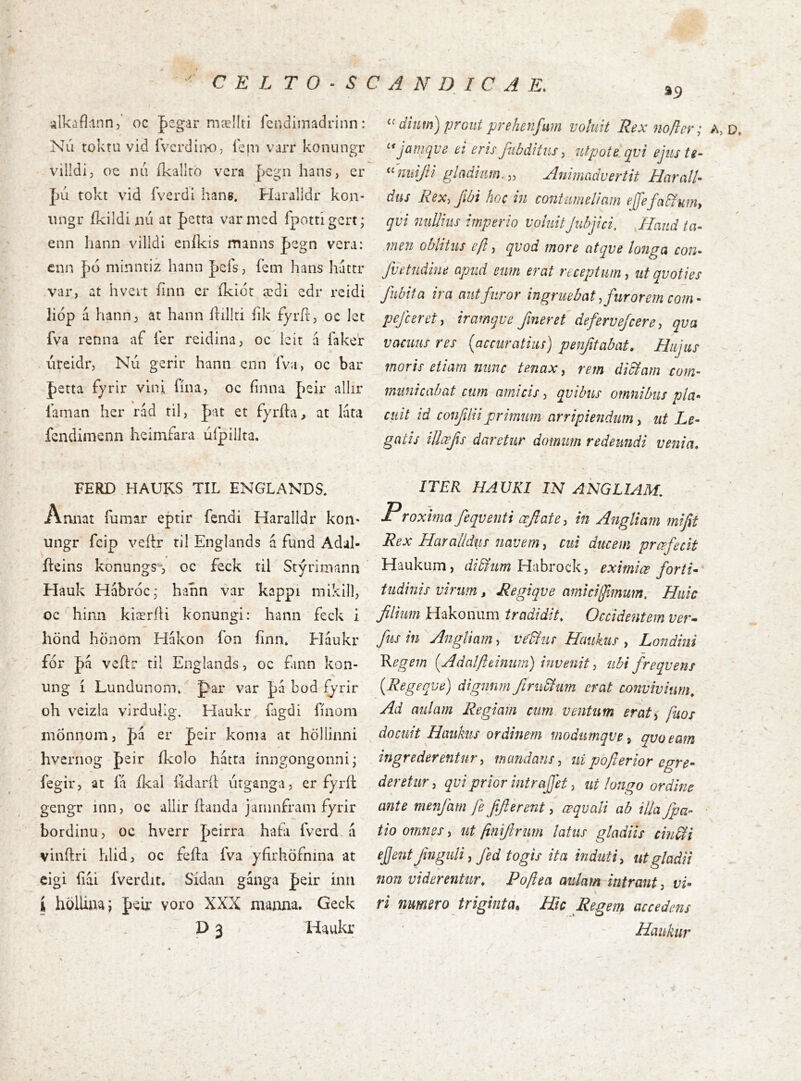 CELTO-SCANDICAE.
29
alkaflann, oc þegar mællti ſendimadrinn:
Nú toktu vid ſverdino, ſem varr konungr
villdi, oc nú ſkalltö vera þegn hans, er
þú tokt vid ſverdi hans. Haralldr kon-
ungr ſkildi nú at þetta var med ſpotti gert;
enn hann villdi enſkis manns þegn vera:
enn þó minntiz hann þeſs, ſem hans háttr
var, at hvert ſinn er ſkiót ædi edr reidi
lióp á hann, at hann ſtillti ſik fyrſt, oc let
ſva renna af ſer reidina, oc leit á ſaker
úreidr, Nú gerir hann enn ſva, oc bar
þetta fyrir vini ſína, oc finna þeir allir
ſaman her rád til, þat et fyrſta, at láta
ſendimenn heimfara úſpillta.
FERD HAUKS TIL ENGLANDS.
Annat ſumar eptir ſendi Haralldr kon-
ungr ſcip veſtr til Englands á fund Adal-
ſteins konungs, oc feck til Stýrimann
Hauk Hábróc; hann var kappi mikill,
oc hinn kiærſti konungi: hann feck i
hönd hönom Hákon ſon ſinn. Háukr
fór þá veſtr til Englands, oc fann kon-
ung í Lundunom. Þar var þá bod fyrir
oh veizla virdulig. Haukr ſagdi ſínom
mönnom, þá er þeir koma at höllinni
hvernog þeir ſkolo hátta inngongonni;
ſegir, at ſá ſkal ſidarſt útganga, er fyrſt
gengr inn, oc allir ſtanda jamnfram fyrir
bordinu, oc hverr þeirra hafa ſverd á
vinſtri hlid, oc feſta ſva yfirhöfnina at
eigi ſiái ſverdit. Sídan gánga þeir inn
í höllina; þeir voro XXX manna. Geck
D 3 Haukr
“dium) prout prehenſum voluit Rex noſter; A. D.
“jamqve ei eris ſubditus, utpote qvi ejus te-
“nuiſti gladium.„ Animadvertit Harall-
dus Rex, ſibi hoc in contumeliam eſſe factum,
qvi nullius imperio voluit ſubjici. Haud ta-
men oblitus eſt, qvod more atqve longa con-
ſvetudine apud eum erat receptum, ut qvoties
ſubita ira aut furor ingruebat, furorem com-
peſceret, iramqve ſineret defervefcere, qva
vacuus res (accuratius) penſitabat. Hujus
moris etiam nunc tenax, rem dictam com-
municabat cum amicis, qvibus omnibus pla-
cuit id conſilii primum arripiendum, ut Le-
gatis illæſis daretur domum redeundi venia.
ITER HAUKI IN ANGLIAM.
Proxima ſeqventi æſtate, in Angliam miſit
Rex Haralldus navem, cui ducem præfecit
Haukum, dictum Habrock, eximiæ forti-
tudinis virum, Regiqve amiciſſimum. Huic
filium Hakonum tradidit. Occidentem ver-
ſus in Angliam, vectus Haukus, Londini
Regem (Adalſteinum) invenit, ubi freqvens
(Regeqve) dignum ſtructum erat convivium.
Ad aulam Regiam cum ventum erat, ſuos
docuit Haukus ordinem modumqve, qvo eam
ingrederentur, mandans, ui poſterior egre-
deretur, qvi prior intraſſet, ut longo ordine
ante menſam ſe ſiſterent, æqvali ab illa ſpa-
tio omnes, ut ſiniſtrum latus gladiis cincti
eſſent ſinguli, ſed togis ita induti, ut gladii
non viderentur. Poſtea aulam intrant, vi-
ri numero triginta. Hic Regem accedens
Haukur